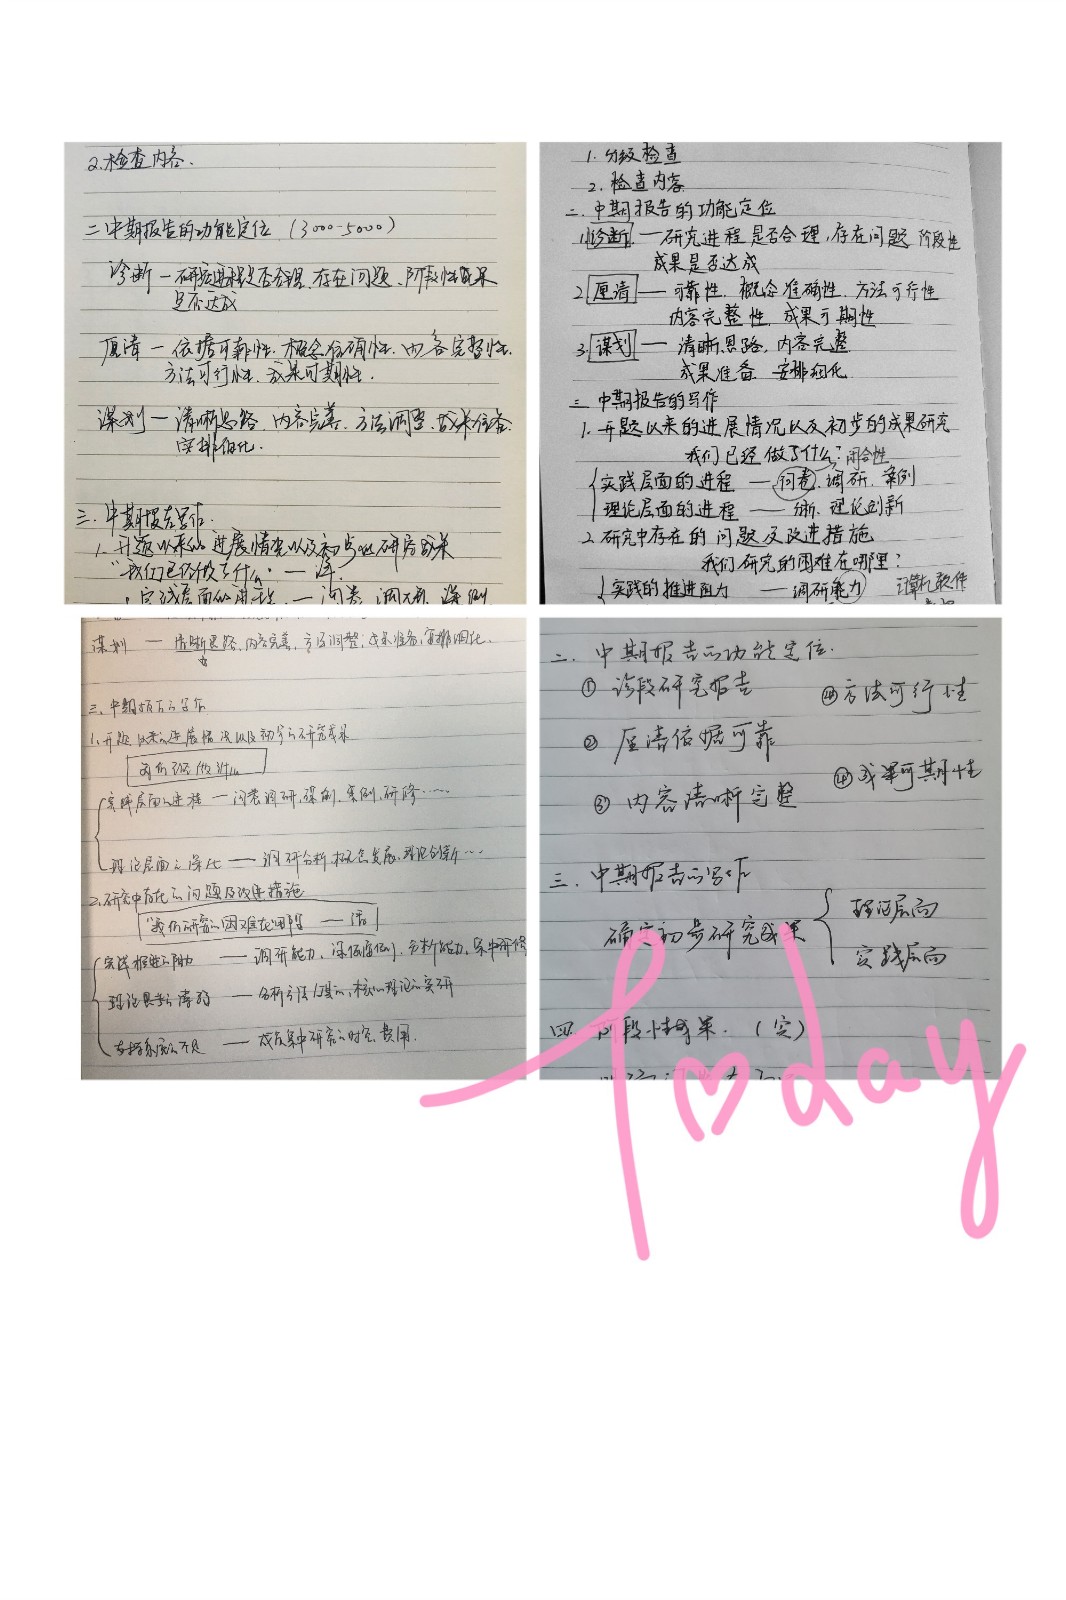 2.检查内容.
二 中期报告的功能定位 (3000-5000)
诊断 — 研究进程是否合理、存在问题、阶段性成果
是否达成
厘清 — 依据可靠性、概念准确性、内容完整性、
方法可行性、成果可期性.
谋划 — 清晰思路、内容完善、方法调整、成果准备
安排细化.
三. 中期报告写作.
1. 开题以来的进展情况以及初步的研究成果
"我们已经做了什么" —
实践层面的进程 — 问卷、调研、课例
1. 分级检查
2. 检查内容
二. 中期报告的功能定位
1.诊断 — 研究进程是否合理,存在问题 阶段性
成果是否达成
2.厘清 — 可靠性. 概念准确性. 方法可行性
内容完整性. 成果可期性
3.谋划 — 清晰思路, 内容完整
成果准备 安排细化
三 中期报告的写作
1. 开题以来的进展情况以及初步的成果研究
我们已经做了什么? 闭合性
实践层面的进程 — 问卷、调研、案例
理论层面的进程 — 分析、理论创新
2 研究中存在的问题及改进措施
我们研究的困难在哪里?
实践的推进阻力 — 调研能力 计算机软件
谋划 — 清晰思路, 内容完善, 方法调整, 成果准备, 安排细化.
三. 中期报告的写作
1. 开题以来的进展情况以及初步的研究成果
我们已经做什么
实践层面的进程 — 问卷调研, 课例, 案例, 研修……
理论层面的深化 — 调研分析, 概念发展, 理论创新…
2. 研究中存在的问题及改进措施
"我们研究的困难在哪里 —
实践推进的阻力 — 调研能力, 分析能力, 集中研修
理论思考的薄弱 — 分析方法, 核心理论的实研
支持系统的不足 — 成员集中研究的时空、费用.
二. 中期报告的功能定位.
① 诊段研究报告
④方法可行性
② 厘清依据可靠
成果可期性
③ 内容清晰完整
三. 中期报告的写作
确定初步研究成果
理论层面
实践层面
四. 阶段性成果. (实)
Today